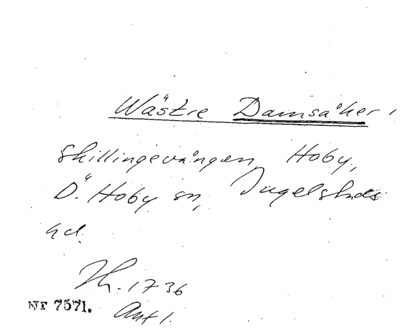 Wästre Damsåker,
Skillingevången, Hoby,
Ö. Hoby sn, Ingelstads
hd.
Th. 1736
Akt 1.
NF 7571.